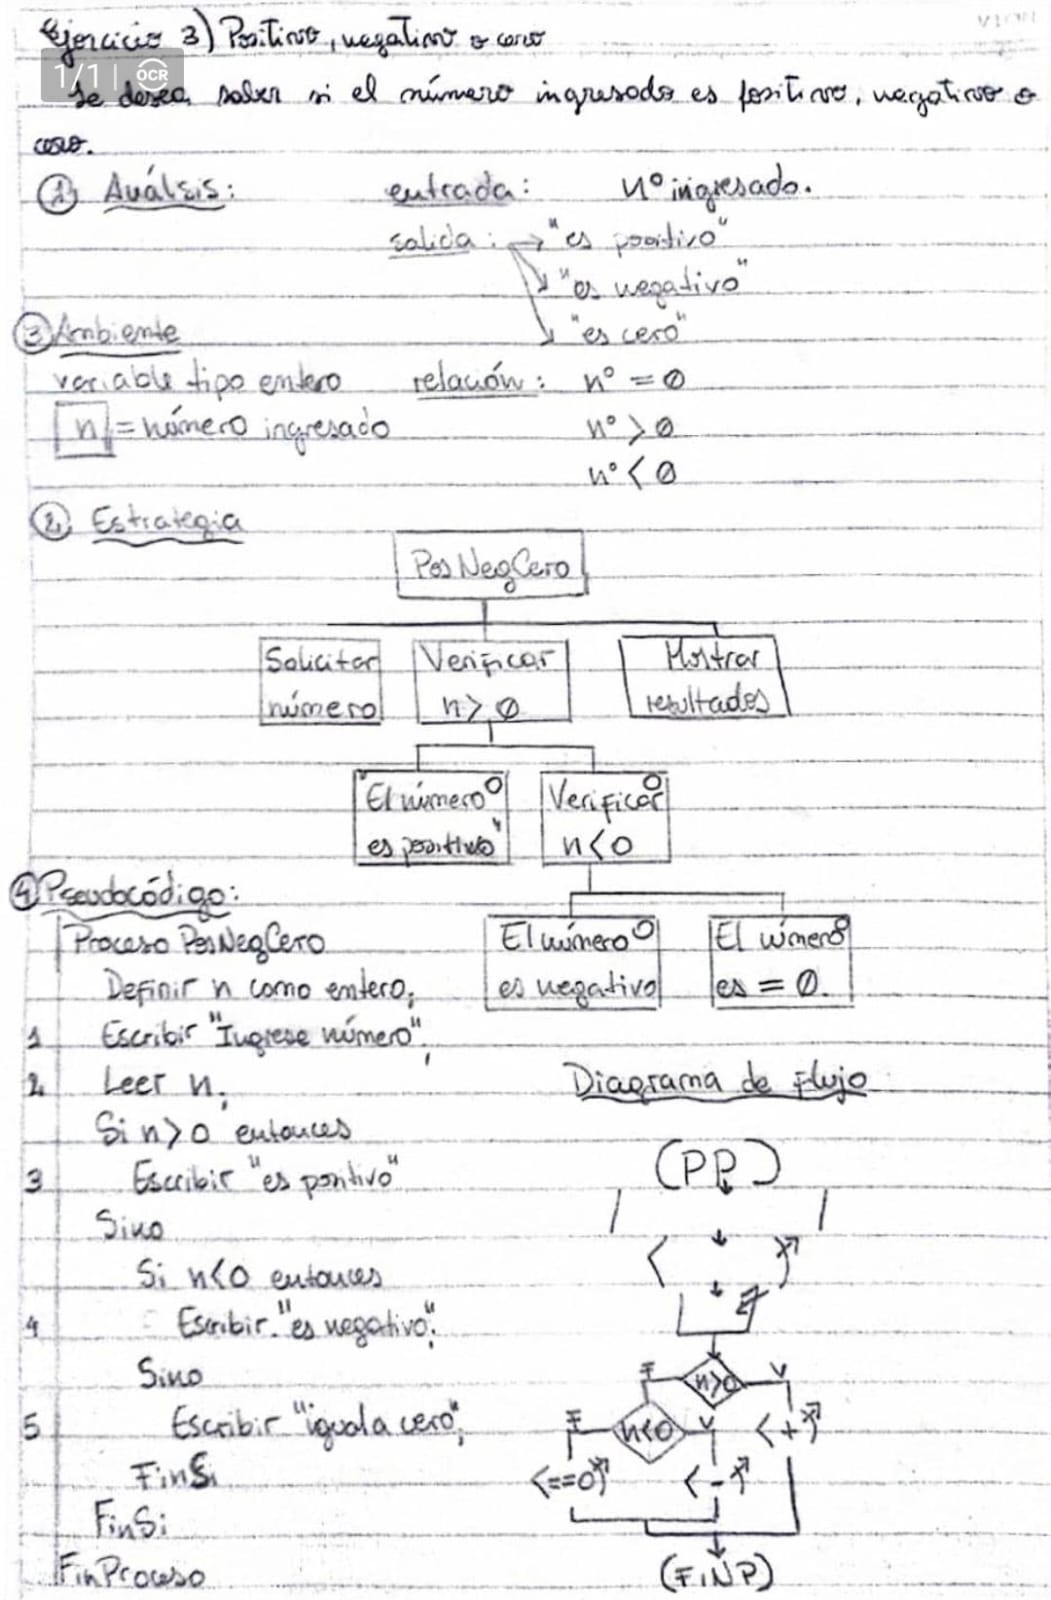 Ejercicio 3) Positivo, negativo o cero
1/1 | OCR
Se desea saber si el número ingresado es positivo, negativo o
cero.
① Análsis: entrada: nº ingresado.
salida: → "es positivo"
"es negativo"
"es cero"
③ Ambiente
variable tipo entero relación: nº = 0
n = número ingresado nº > 0
nº < 0
② Estrategia
PosNegCero
Solicitar número
Verificar n > 0
Mostrar resultados
"El número es positivo"
Verificar n < 0
④ Pseudocódigo:
El número es negativo
El número es = 0.
Proceso PosNegCero
Definir n como entero;
1 Escribir "Ingrese número";
2 Leer n;
Si n > 0 entonces
3 Escribir "es positivo"
Sino
Si n<0 entonces
4 Escribir "es negativo";
Sino
5 Escribir "igual a cero";
FinSi
FinSi
FinProceso
Diagrama de Flujo
(PP)
F n>0 V
F n<0 V
+
==0
-
(FINP)